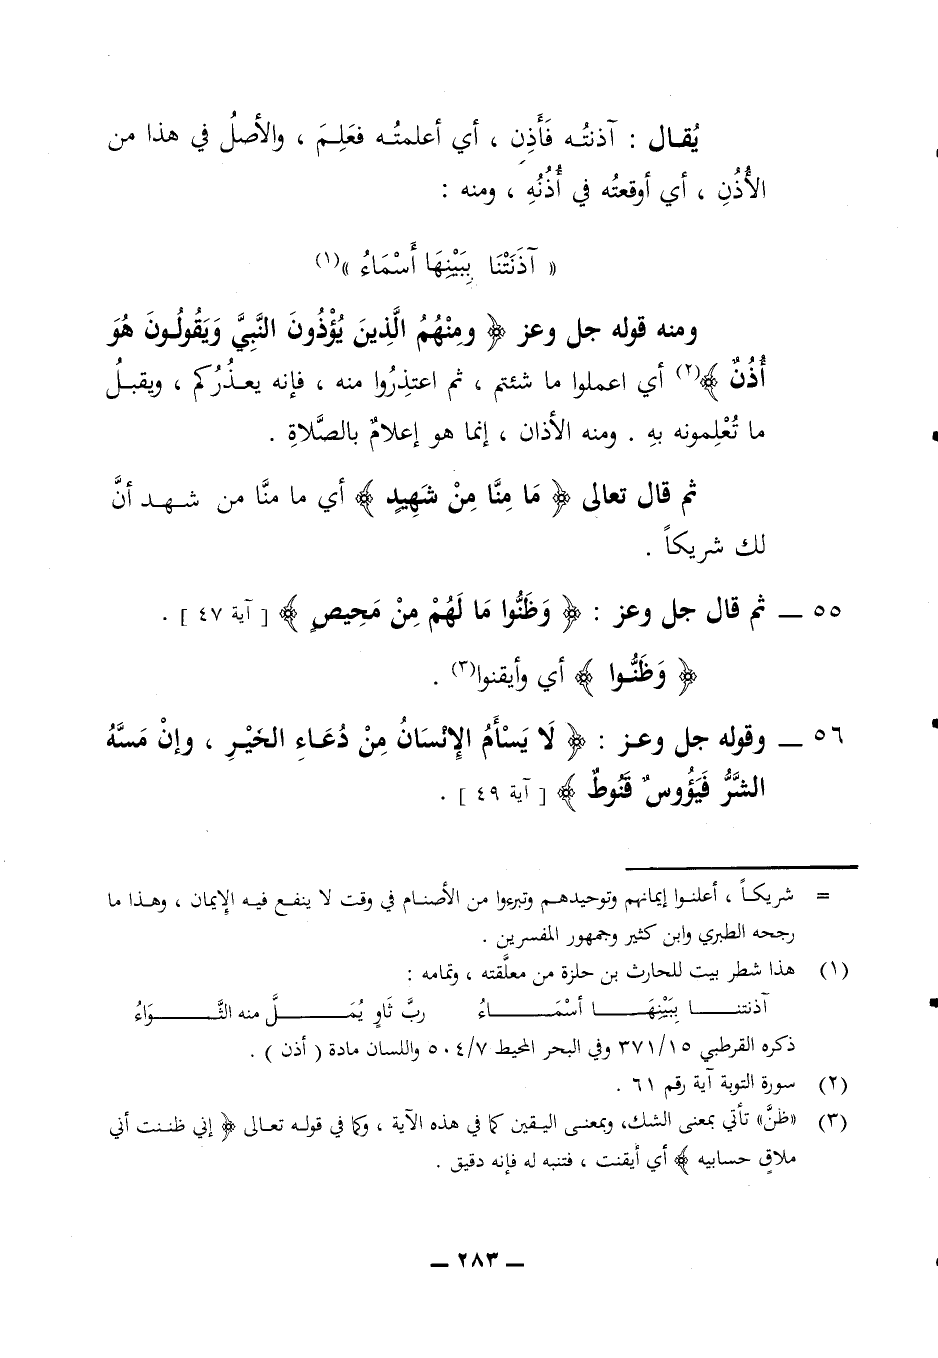 يُقـال : آذنتُـه فَأَذِن ، أي أعلمتُـه فعَلِـمَ ، والأصلُ في هذا من
الأُذُنِ ، أي أوقعتُه في أُذُنُهِ ، ومنه :
« آذَنَتْنَا بِبَيْنِهَا أَسْمَاءُ »(١)
ومنه قوله جل وعز ﴿ ومِنْهُمُ الَّذِينَ يُؤْذُونَ النَّبِيَّ وَيَقُولُـونَ هُوَ
أُذُنٌ ﴾(٢) أي اعملوا ما شئتم ، ثم اعتذِرُوا منه ، فإنه يعـذُرُكم ، ويقبلُ
ما تُعْلِمونه بهِ . ومنه الأذان ، إنما هو إعلامٌ بالصَّلاةِ .
ثم قال تعالى ﴿ مَا مِنَّا مِنْ شَهِيدٍ ﴾ أي ما منَّا من شـهـد أنَّ
لك شريكاً .
٥٥ ــ ثم قال جل وعز : ﴿ وَظَنُّوا مَا لَهُمْ مِنْ مَحِيصٍ ﴾ [ آية ٤٧ ] .
﴿ وَظَنُّـوا ﴾ أي وأيقنوا(٣) .
٥٦ ــ وقوله جل وعـز : ﴿ لَا يَسْأَمُ الإِنْسَانُ مِنْ دُعَـاءِ الخَيْـرِ ، وإنْ مَسَّهُ
الشَّرُّ فَيَؤُوسٌ قَنُوطٌ ﴾ [ آية ٤٩ ] .
= شريكـاً ، أعلنـوا إيمانهم وتوحيدهـم وتبرءوا من الأصنـام في وقت لا ينفـع فيـه الإيمان ، وهـذا ما
رجحه الطبري وابن كثير وجمهور المفسرين .
(١) هذا شطر بيت للحارث بن حلزة من معلَّقته ، وتمامه :
آذنتنـــا بِبَيْنِهَــــا أسْمَــــاءُ ربَّ ثَاوٍ يُمَــــلَّ منه الثَّــــوَاءُ
ذكره القرطبي ٣٧١/١٥ وفي البحر المحيط ٥٠٤/٧ واللسان مادة ( أذن ) .
(٢) سورة التوبة آية رقم ٦١ .
(٣) «ظنَّ» تأتي بمعنى الشك، وبمعنـى اليـقين كما في هذه الآية ، وكما في قولـه تعـالى ﴿ إني ظنـنت أني
ملاقٍ حسابيه ﴾ أي أيقنت ، فتنبه له فإنه دقيق .
ــ ٢٨٣ ــ